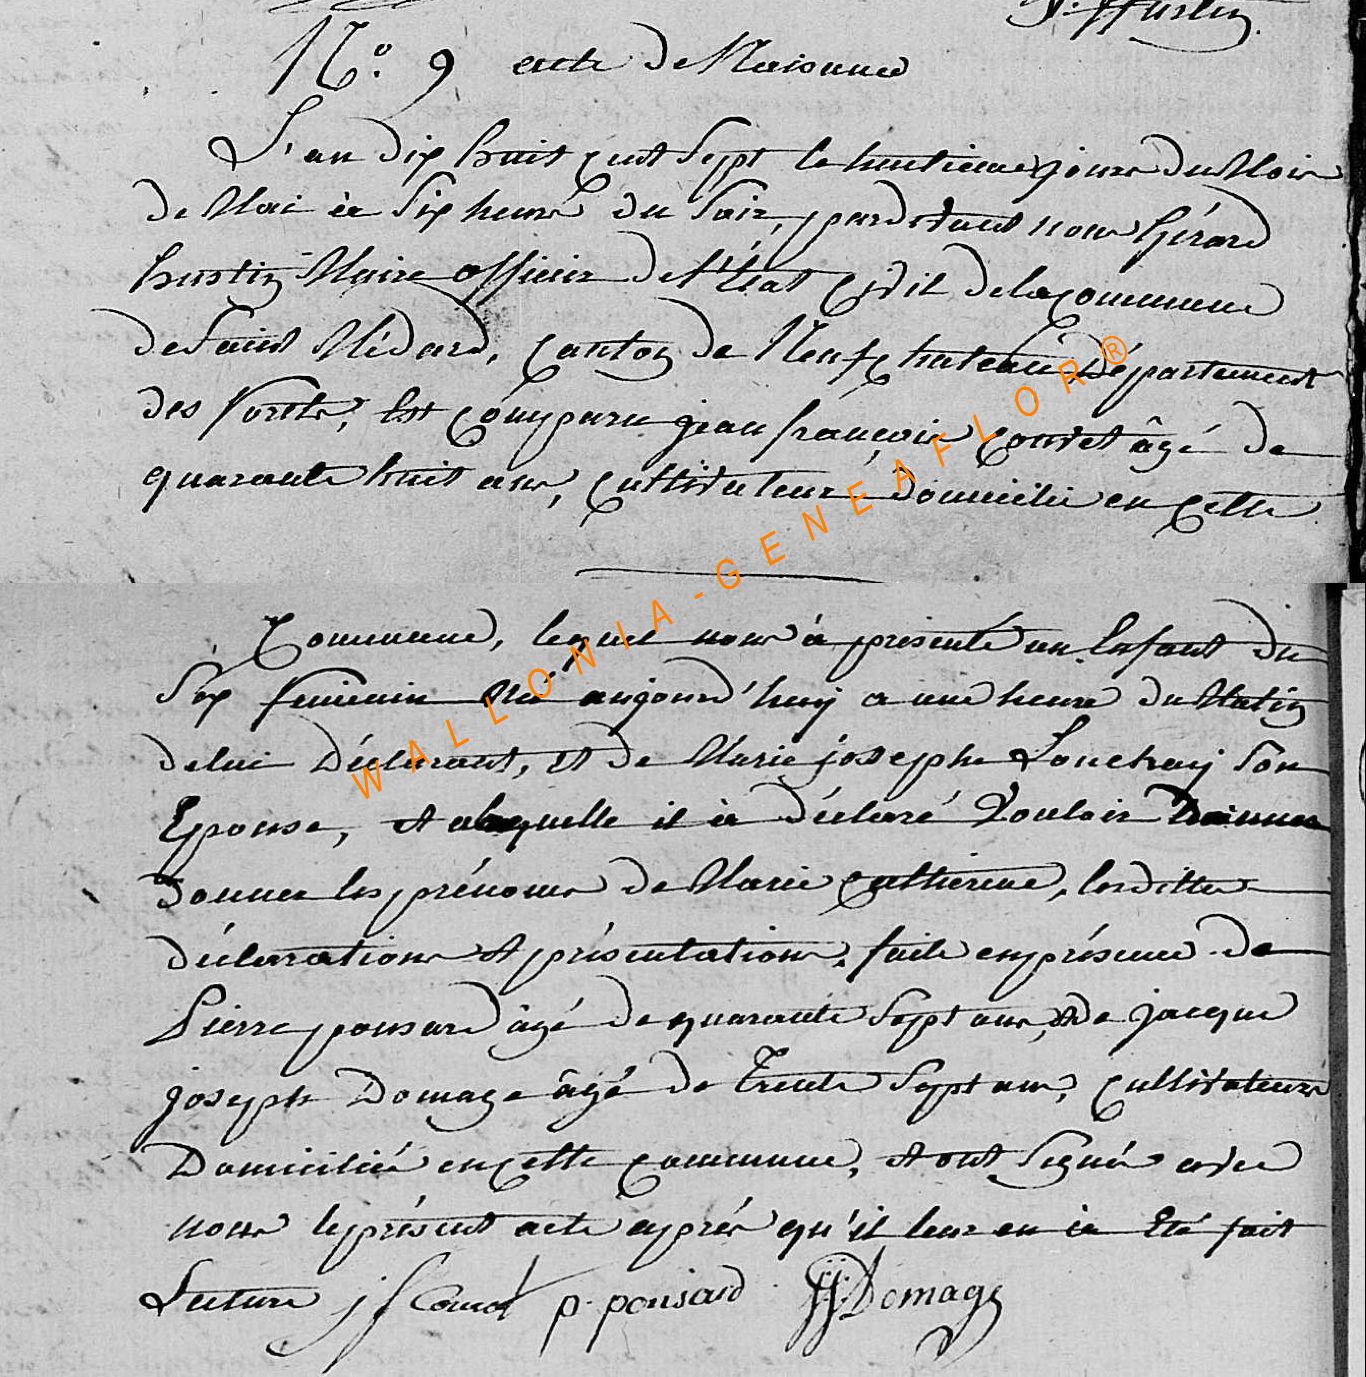 J. Hustin
N.° 9 acte de Naissance
L'an dix huit cent Sept le huitieme jours du Mois
de Mai à Six heures du Soir, pardevant nous Gérard
hustin Maire officier de l'État Civil de la commune
de Saint Médard, Canton de Neufchateau Département
des forets, Est Comparu jean françois Couvet âgé de
quarante huit ans, Cultivateur domicilié en Cette
Commune, lequel nous à présenté un Enfant du
Séx feminin Né aujourd'huy a une heure du Matin
de lui Déclarant, et de Marie josephe Louchay Son
Epouse, et alaquelle il à déclaré Vouloir Donner
Donner les prénoms de Marie Catherine, lesdittes
déclarations et présentations, faite en présence de
Pierre ponsard âgé de quarante Sept ans, et de jacque
joseph Domage âgé de Trente Sept ans, Cultivateurs
Domiciliés en Cette Commune, et ont Signés avec
nous le présent acte après qu'il leur en à Eté fait
Lecture jf Couvet p. ponsard JJ Domage
WALLONIA-GENEAFLOR®